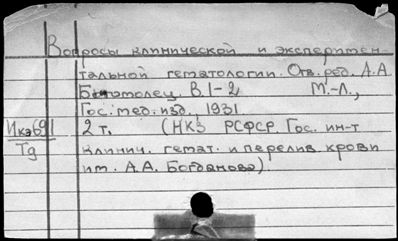 Вопросы клинической и эксперимен-
тальной гематологии. Отв. ред. А.А.
Богомолец. В. 1-2 М.-Л.,
Гос. мед. изд. 1931
Икз691 2 т. (НКЗ РСФСР. Гос. ин-т
Тд клинич. гемат. и перелив. крови
им. А.А. Богданова).